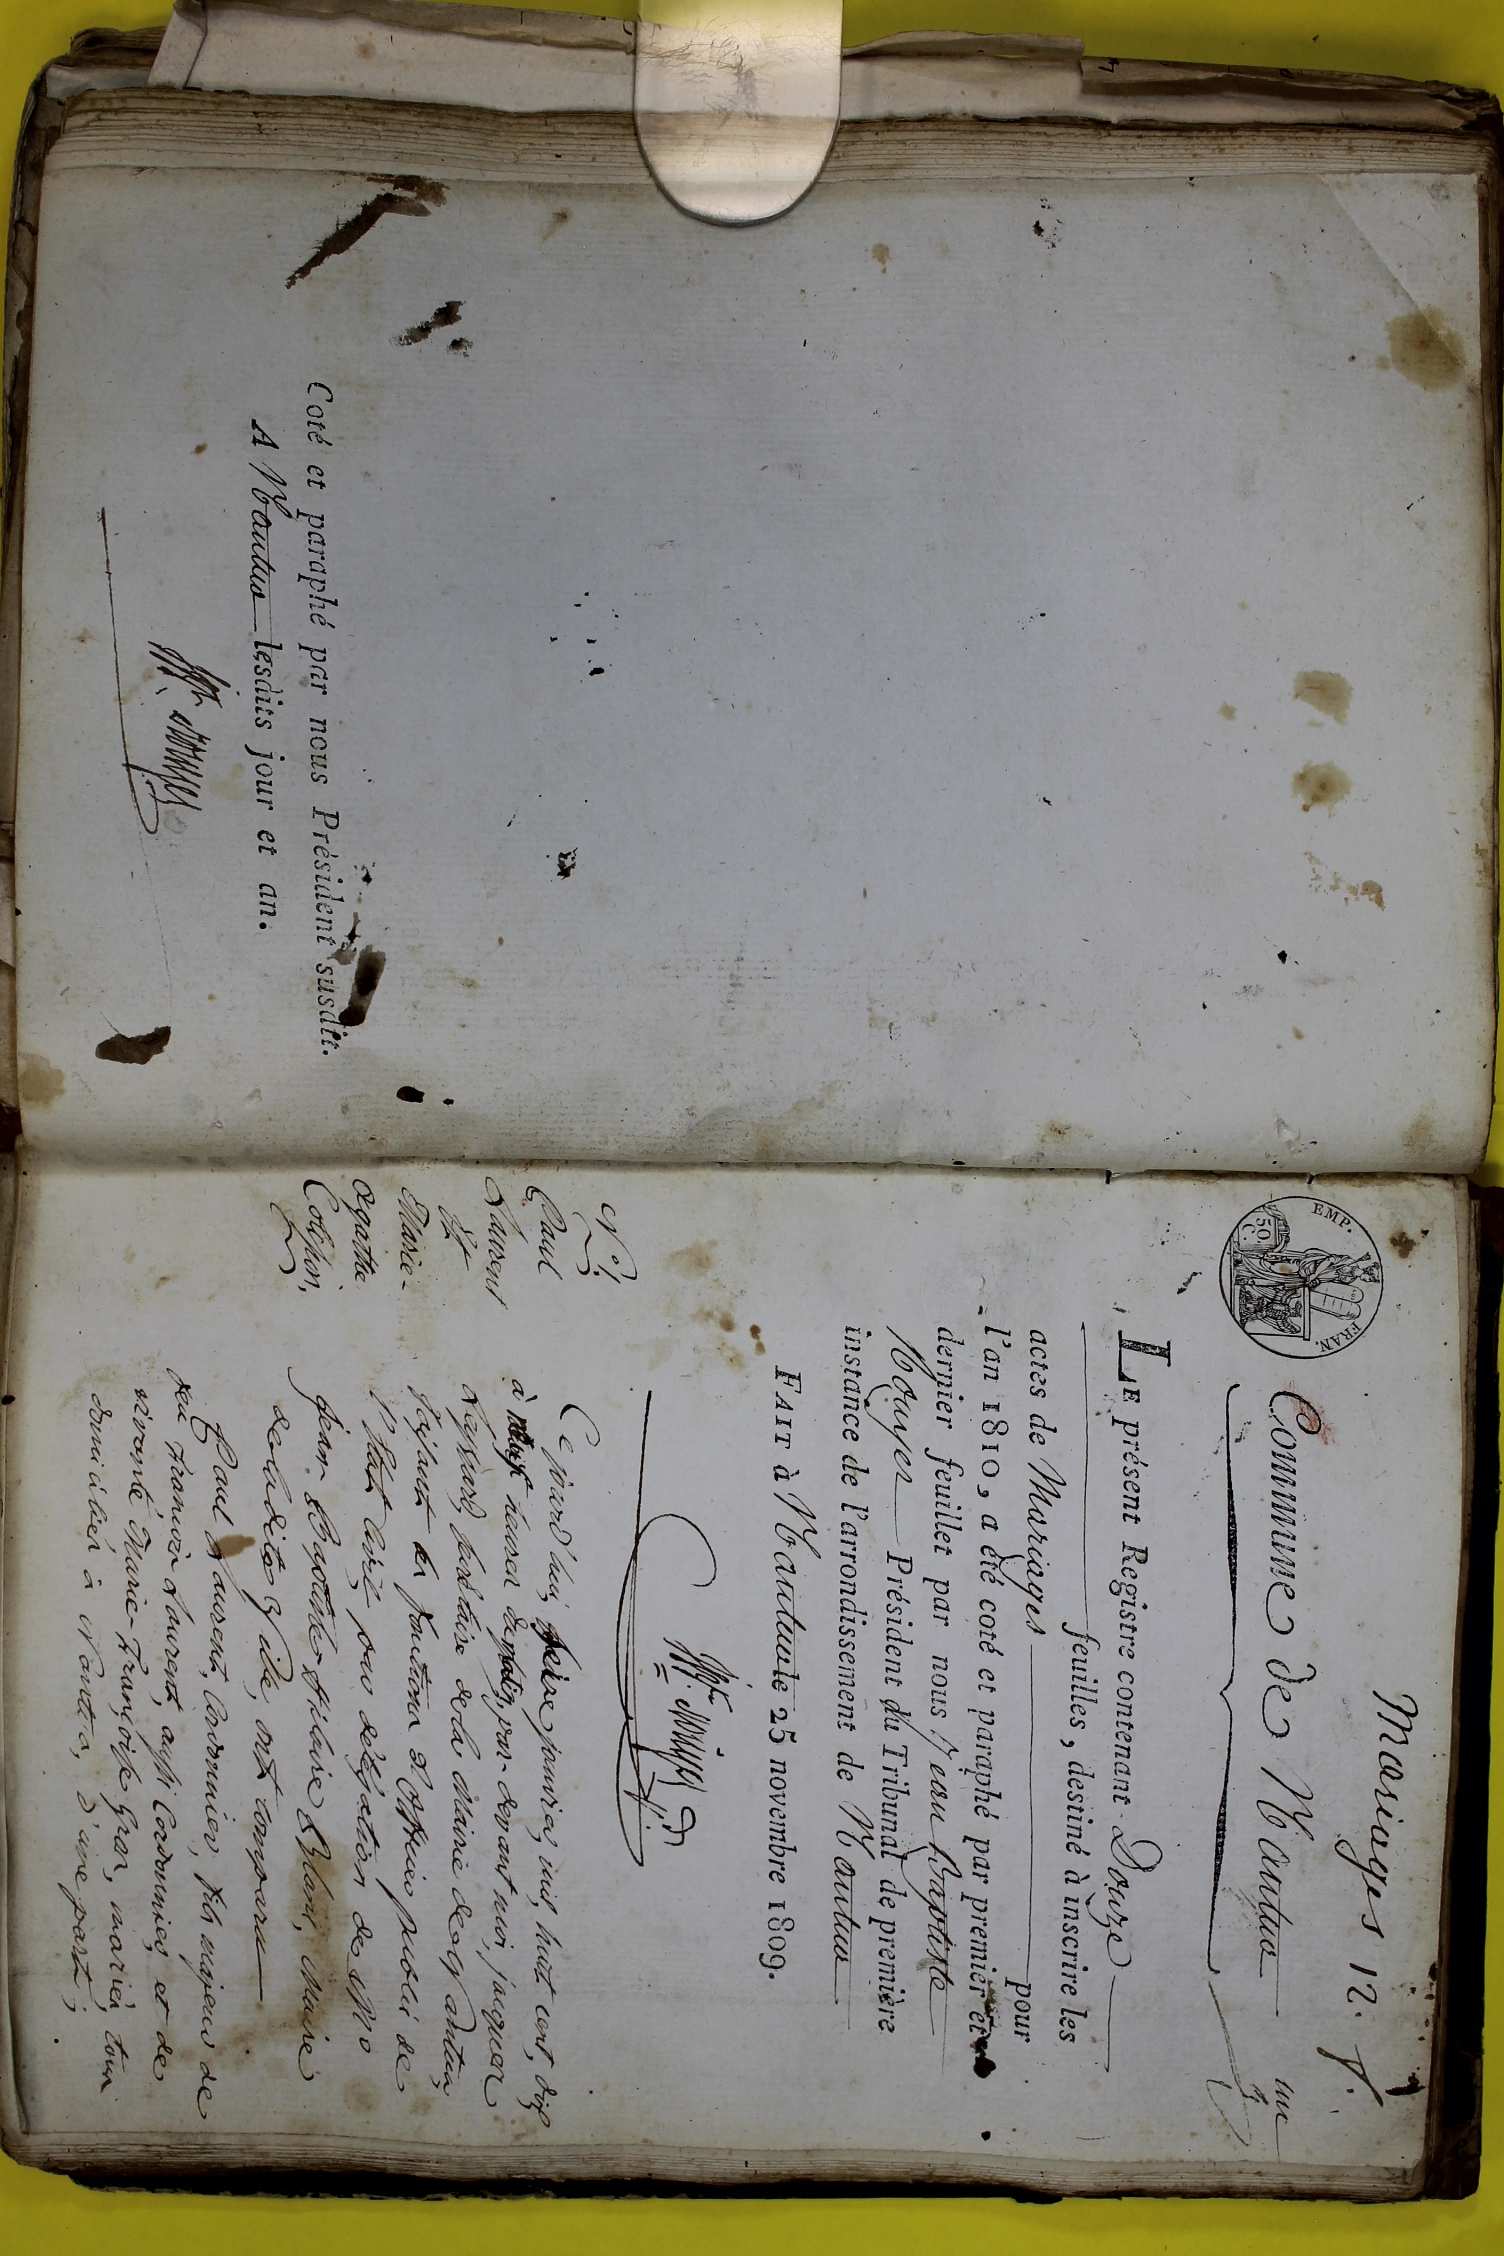 Coté et paraphé par nous Président susdit.
A Nantua lesdits jour et an.
Mariages 12. f.
un
EMP. FRAN.
50 C.
Commune de Nantua
LE présent Registre contenant Douze
feuilles, destiné à inscrire les
actes de Mariages pour
l'an 1810, a été coté et paraphé par premier et
dernier feuillet par nous Jean Baptiste
Président du Tribunal de première
instance de l'arrondissement de Nantua
FAIT à Nantua le 25 novembre 1809.
N° 1.
Paul
Laurent
Et
Marie-
Agathe
Ce jourd'hui seize janvier, mil huit cent dix
à neuf heures du matin, par-devant moi, jacques
secrétaire de la Mairie de Nantua,
faisant les fonctions d'officier public de
l'état civil, par délégation de Mr
Jean Baptiste hilaire Blanc, Maire
de ladite Ville, ont comparu
Paul Laurent, Cordonnier, fils majeur de
feu François Laurent, aussi Cordonnier, et de
vivante Marie-Françoise Gros, mariés, tous
domiciliés à Nantua, d'une part;